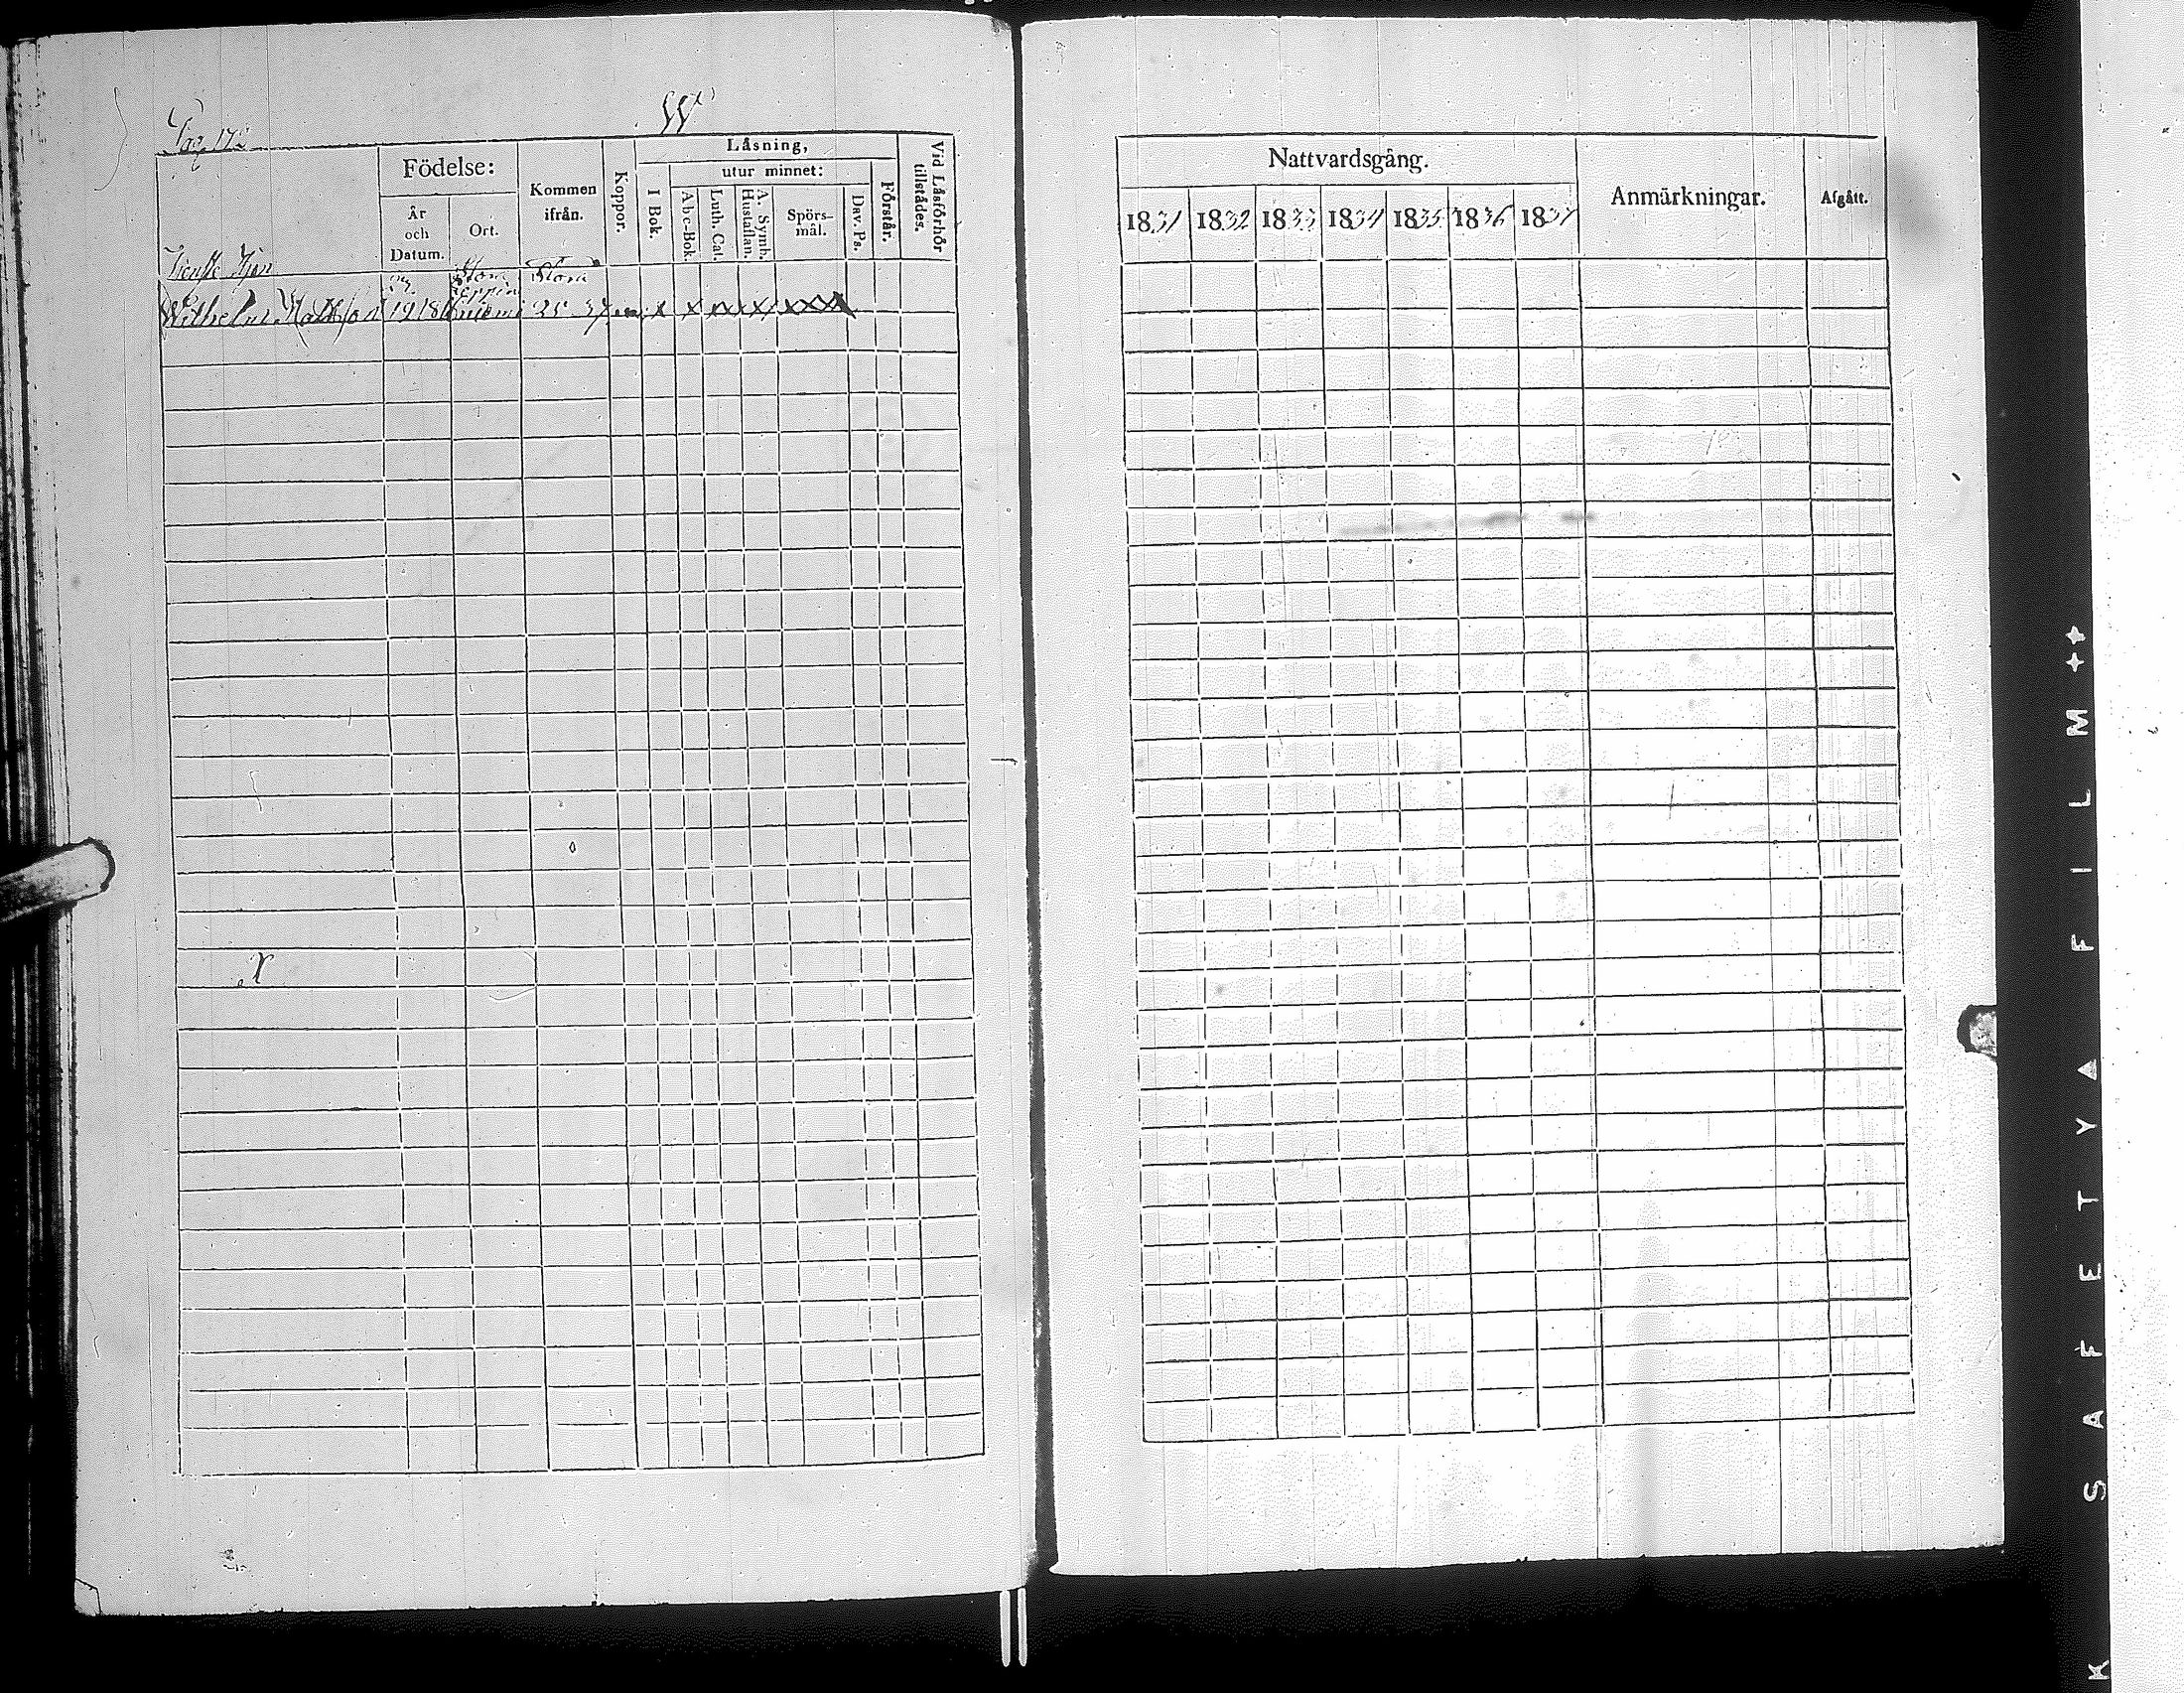 Pag. 172
Födelse:
Kommen
ifrån.
Koppor.
Läsning,
utur minnet:
Vid Läsförhör
tillstådes.
År
och
Datum.
Ort.
I Bok.
Abc-Bok.
Luth. Cat.
A. Symb.
Hustaflan.
Spörs-
mål.
Dav. Ps.
Förstår.
Wilhelm Mattsson
x x xxx xxxx
Nattvardsgång.
Anmärkningar.
Afgått.
1831 1832 1833 1834 1835 1836 1837
K SAFETY▲FILM ++